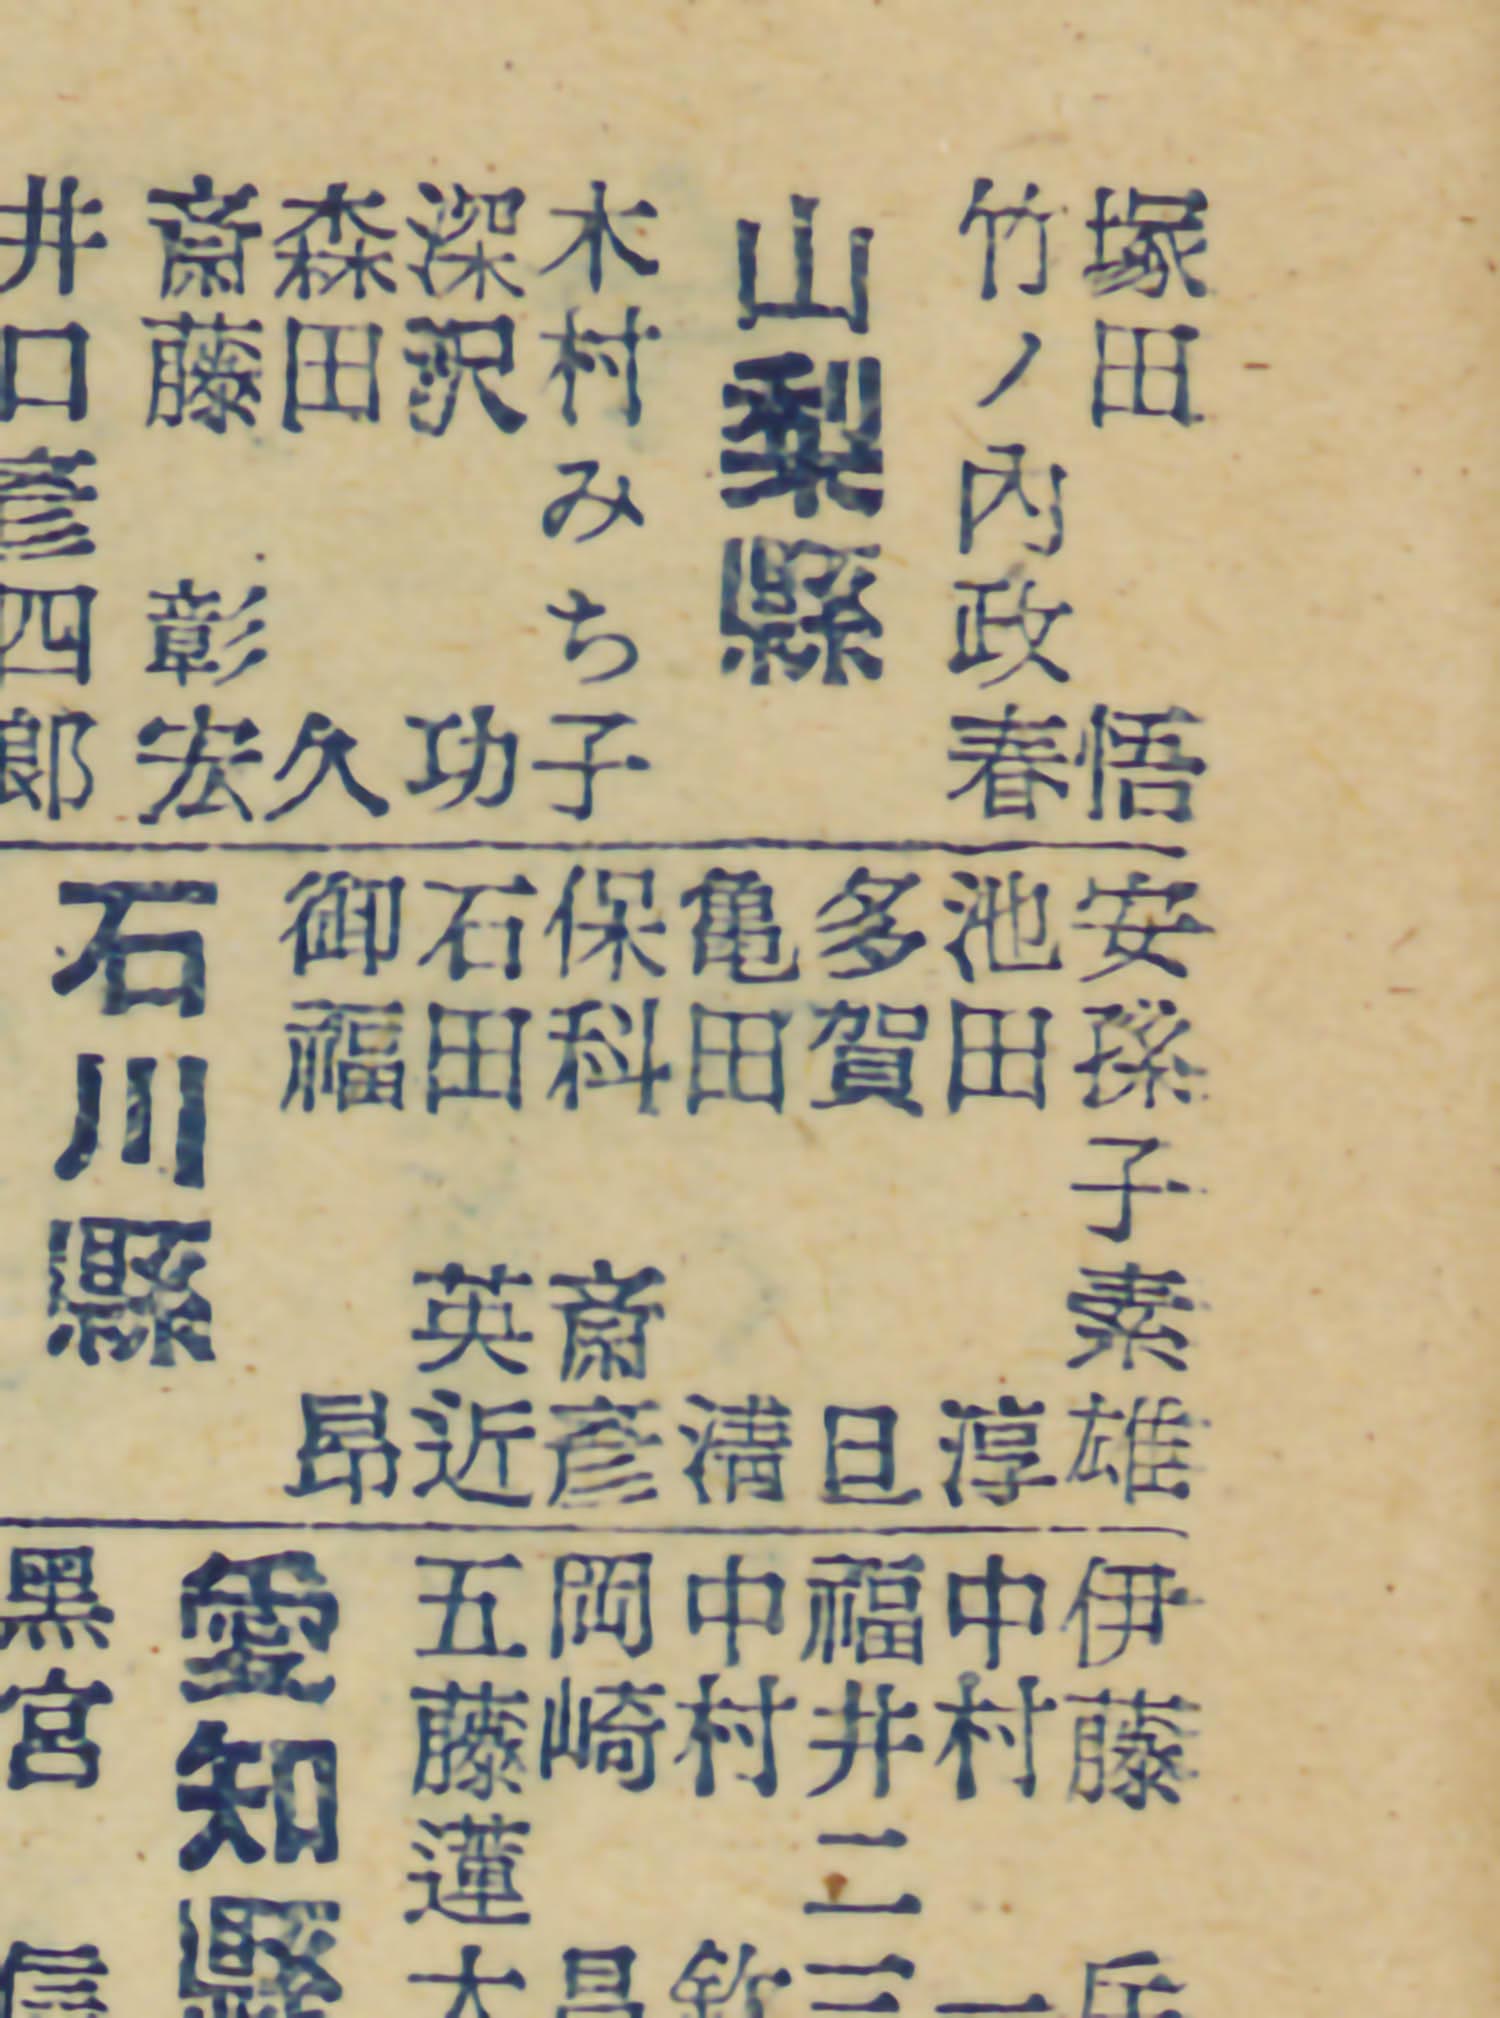 塚田悟
竹ノ內政春
山梨縣
木村みち子
深沢功
森田久
斎藤彰宏
井口彦四郎
安孫子素雄
池田淳
多賀旦
亀田淸
保科斎彦
石田英近
御福昂
石川縣
伊藤岳
中村一
福井二三
中村
岡崎昌
五藤蓮大
愛知縣
黒宮信